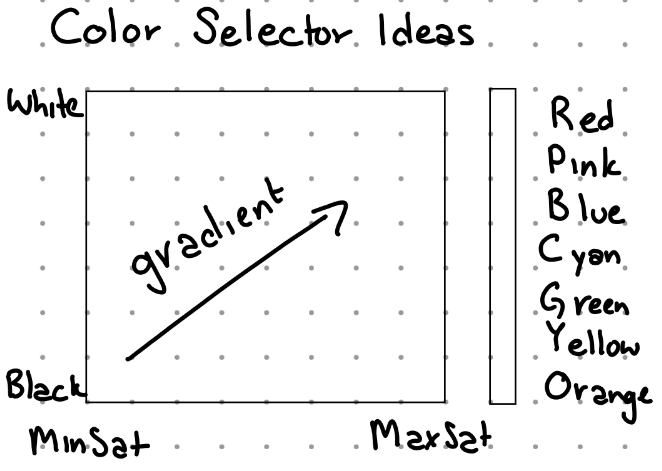 Color Selector Ideas
White
gradient
Black
MinSat
MaxSat
Red
Pink
Blue
Cyan
Green
Yellow
Orange